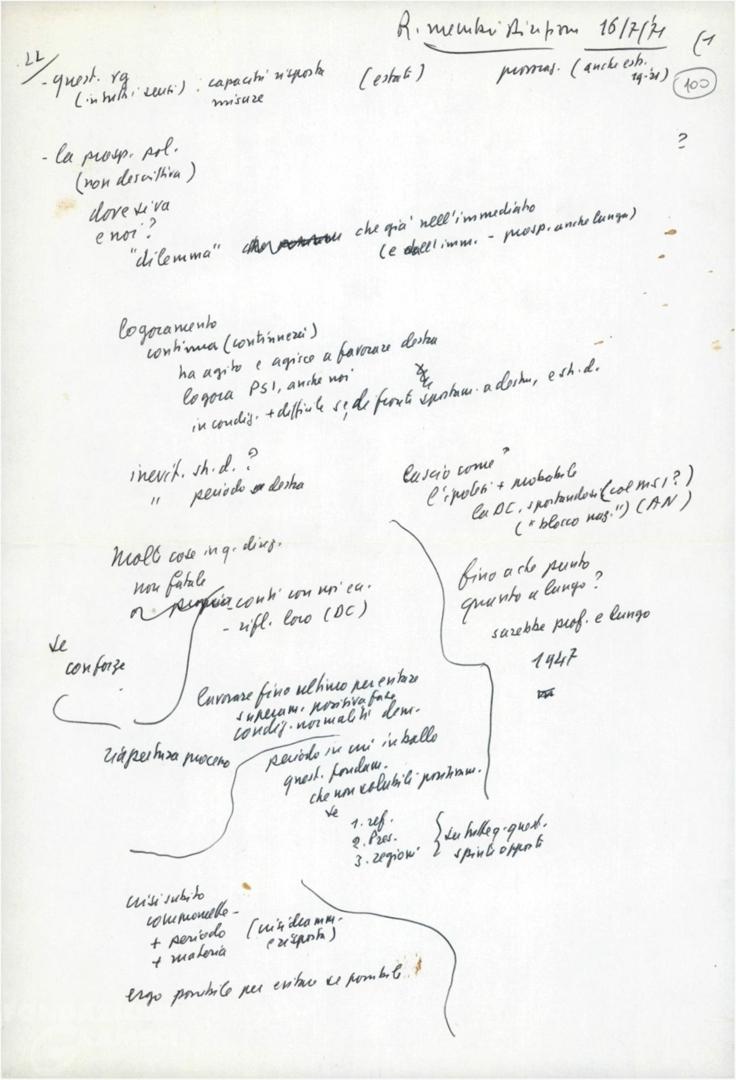 R. membri Direzione 16/7/71 (1
100
22/
- quest. rg (estati) provvis. (anche est.
(intuiti i sensi) : capacità risposta 19-21)
misure
?
- la prosp. pol.
(non descrittiva)
dove si va
e noi?
"dilemma" che già nell'immediato
(e dall'imm. - prosp. anche lunga)
logoramento
continua (continuerà)
ha agito e agisce a favorare destra
logora PSI, anche noi
in condiz. + difficile se, di fronte spostam. a destra, e st. d.
inevit. st. d. ?
" periodo destra
lascio come?
l'ipotesi + probabile
la DC, spostandosi (col MSI?)
("blocco naz.") (AN)
Molte cose in q. direz.
non fatale
conti con noi ca.
- rifl. loro (DC)
fino a che punto
quanto a lungo?
sarebbe prof. e lungo
1947
se
con forze
lavorare fino ultimo per evitare
superam. positiva fase
condiz. normalità dem.
riapertura processo
periodo in cui in ballo
quest. fondam.
che non solubili positivam.
se
1. ref.
2. Pres.
3. regioni
su tutte q. quest.
spinte opposte
crisi subito
+ periodo
+ materia
(crisi dramm.
e risposta)
ergo possibile per evitare se possibile